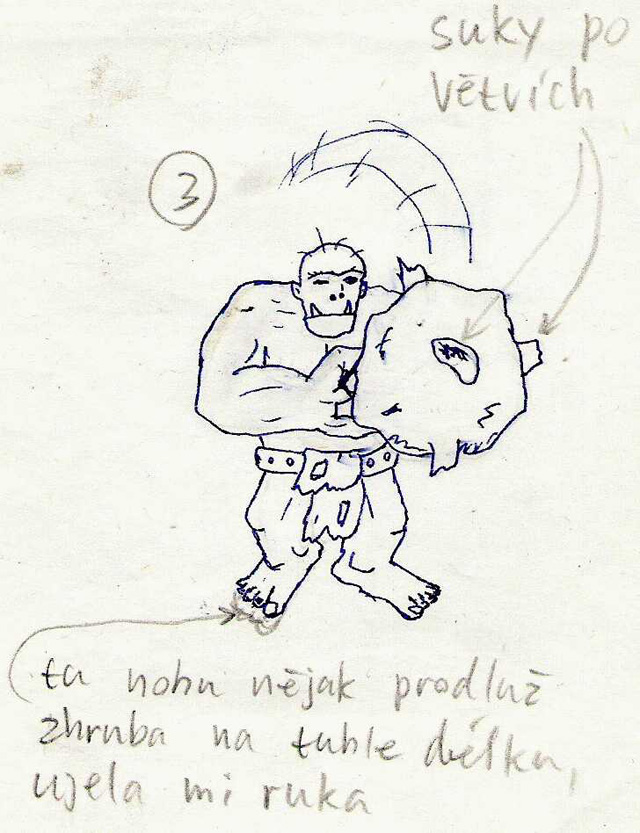 suky po
větvích
3
ta nohu nějak prodluž
zhruba na tuhle délku,
ujela mi ruka